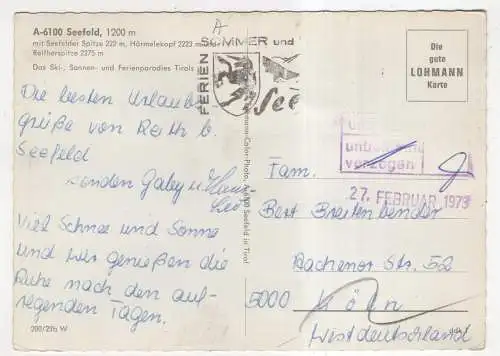 A-6100 Seefeld, 1200 m
mit Seefelder Spitze 222 m, Härmelekopf 2223 m
Reitherspitze 2375 m
Das Ski-, Sonnen- und Ferienparadies Tirols
FERIEN
SOMMER und
See
Die
gute
LOHMANN
Karte
Die besten Urlaubs
grüße von Reith b.
Seefeld
senden Gaby u.
Viel Schnee und Sonne
und wir genießen die
Ruhe nach den auf-
regenden Tagen.
200/276 W
Color-Photo, A-6100 Seefeld in Tirol
unbekannt
verzogen
27. FEBRUAR 1973
Fam.
Bert Breitenbender
Aachener Str. 52
5000 Köln
Westdeutschland